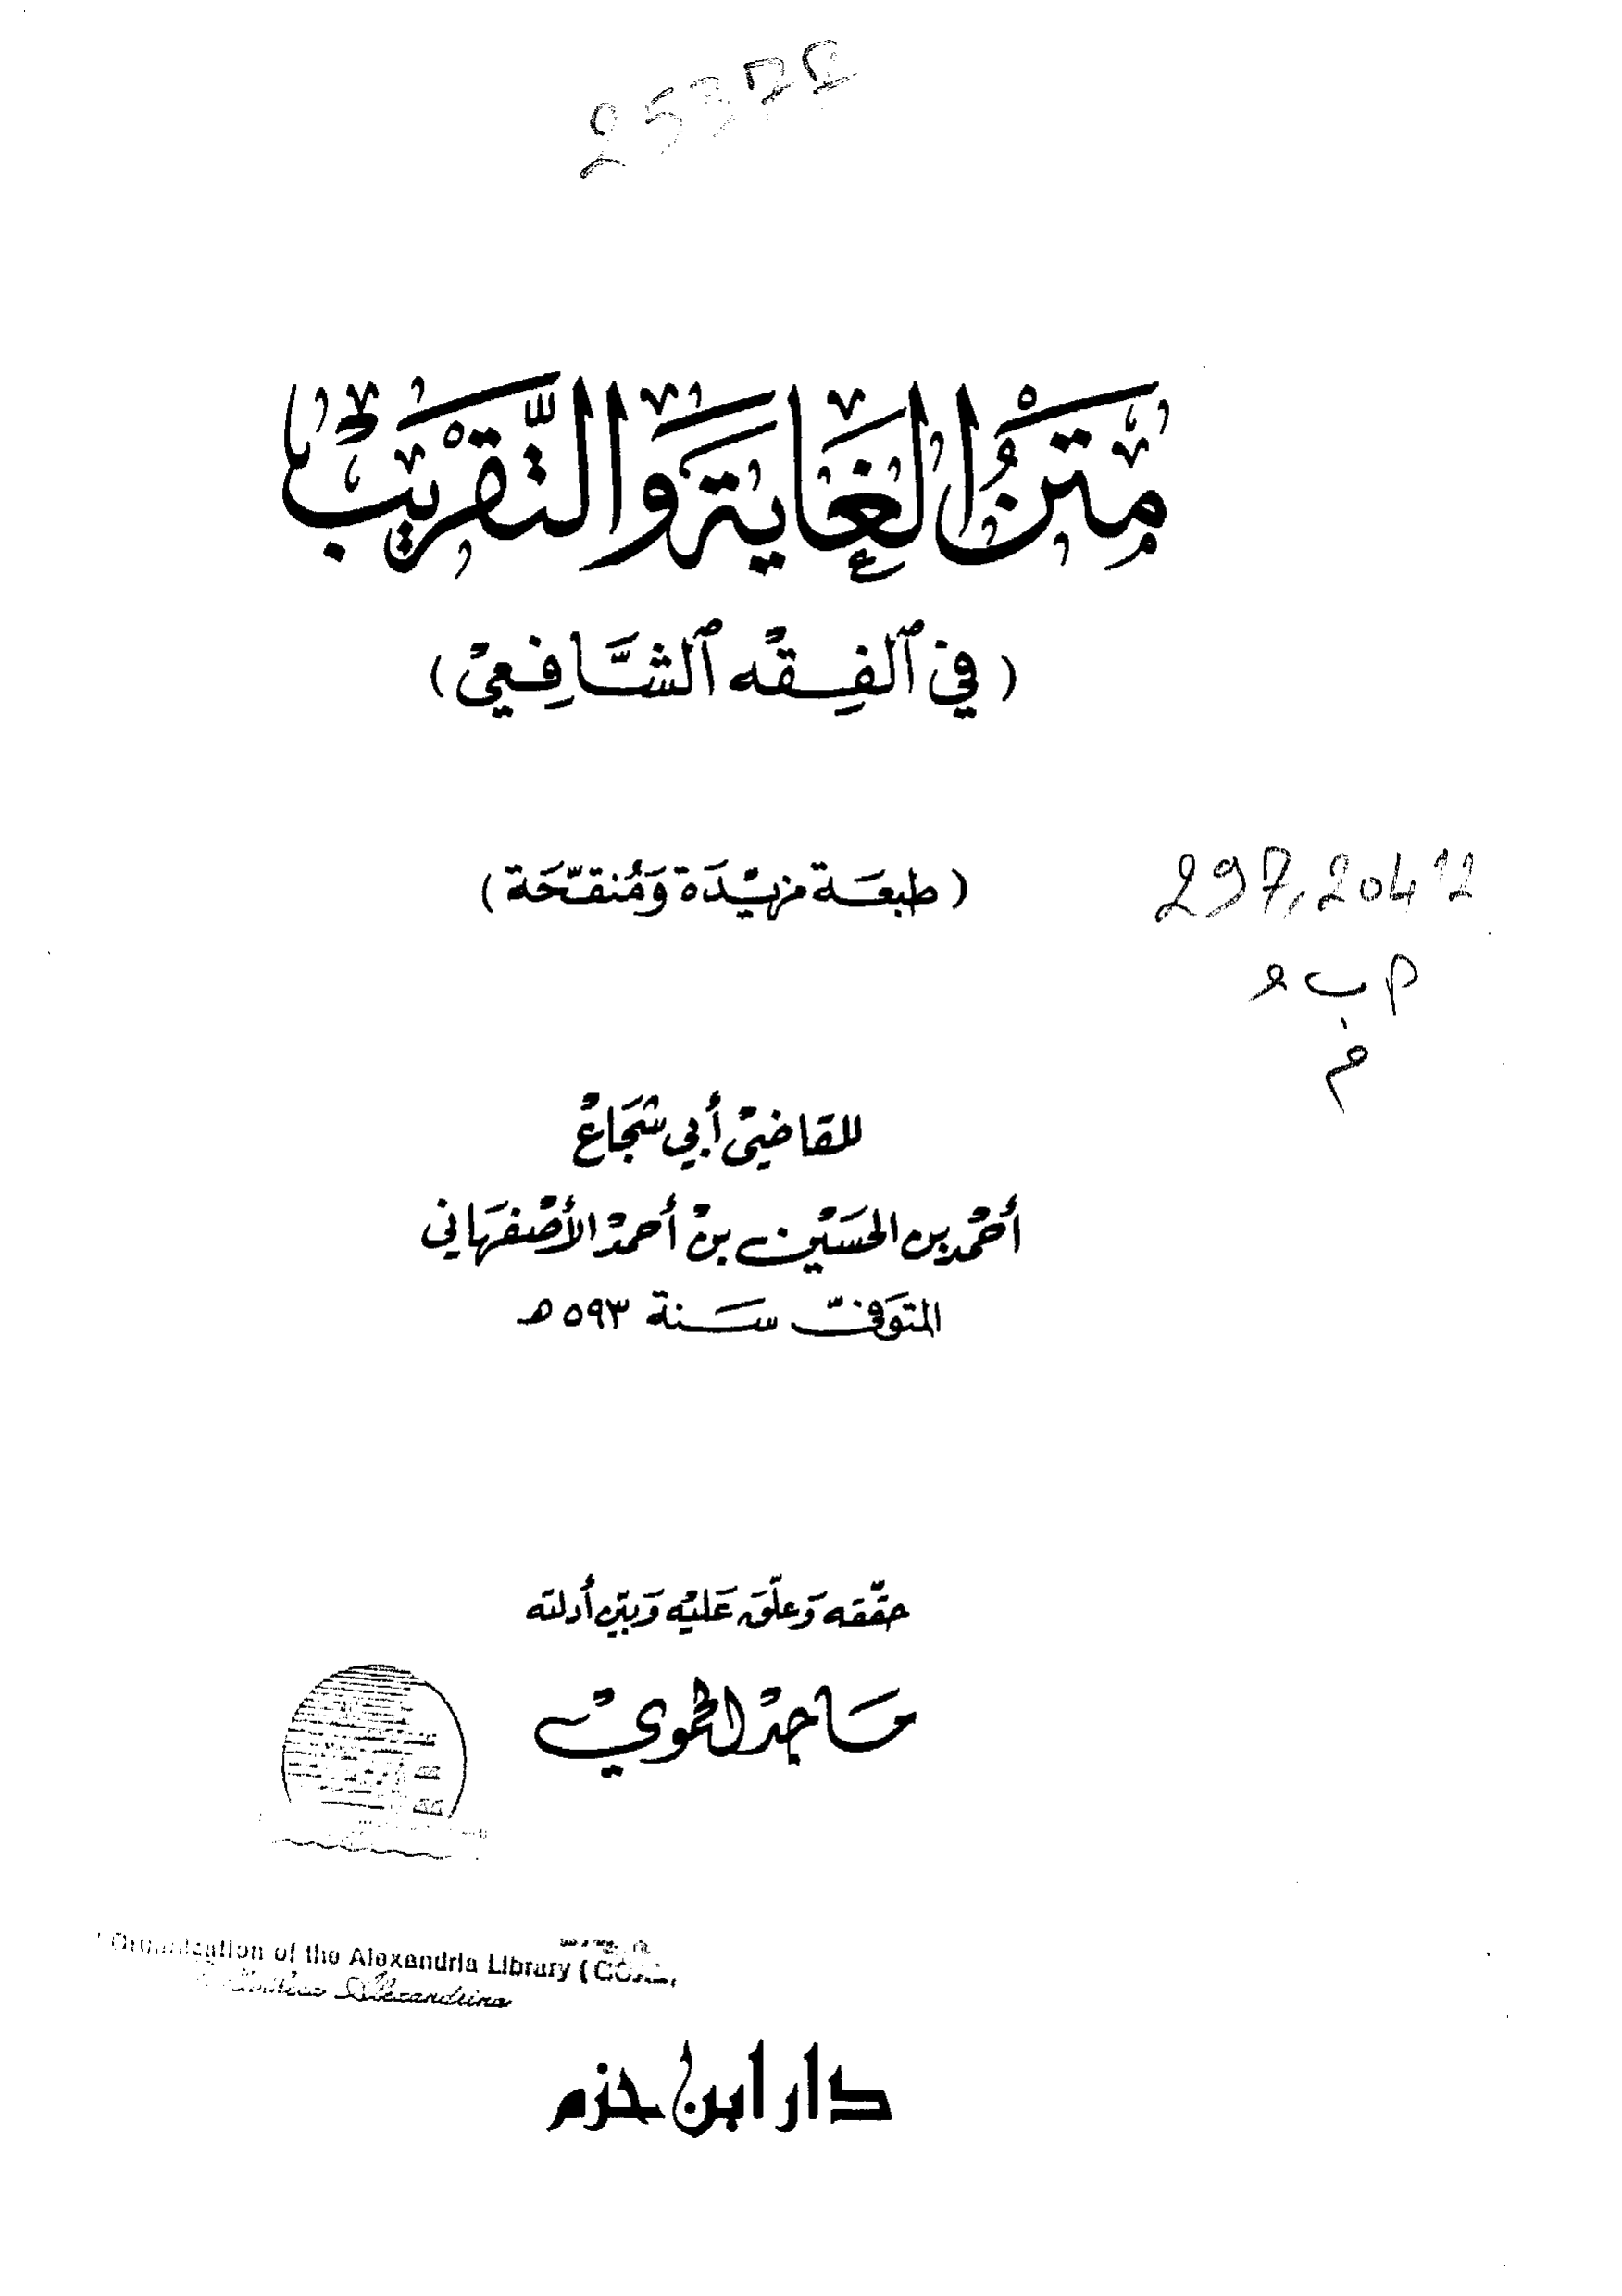 متن الغاية والتقريب
(في الفقه الشافعي)
(طبعة مزيدة ومنقحة)
297,204 12
للقاضي أبي شجاع
أحمد بن الحسين بن أحمد الأصفهاني
المتوفى سنة ٥٩٣ هـ
حققه وعلق عليه وبين أدلته
ماجد الحموي
Organization of the Alexandria Library
Alexandrina
دار ابن حزم